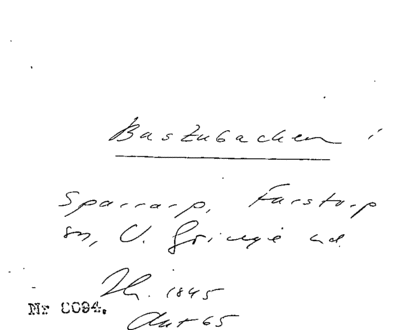 Bastubacken i
Sparrarp, Farstorp
sn, V. Göinge hd.
Th. 1845
Akt 65
Nr 0094.